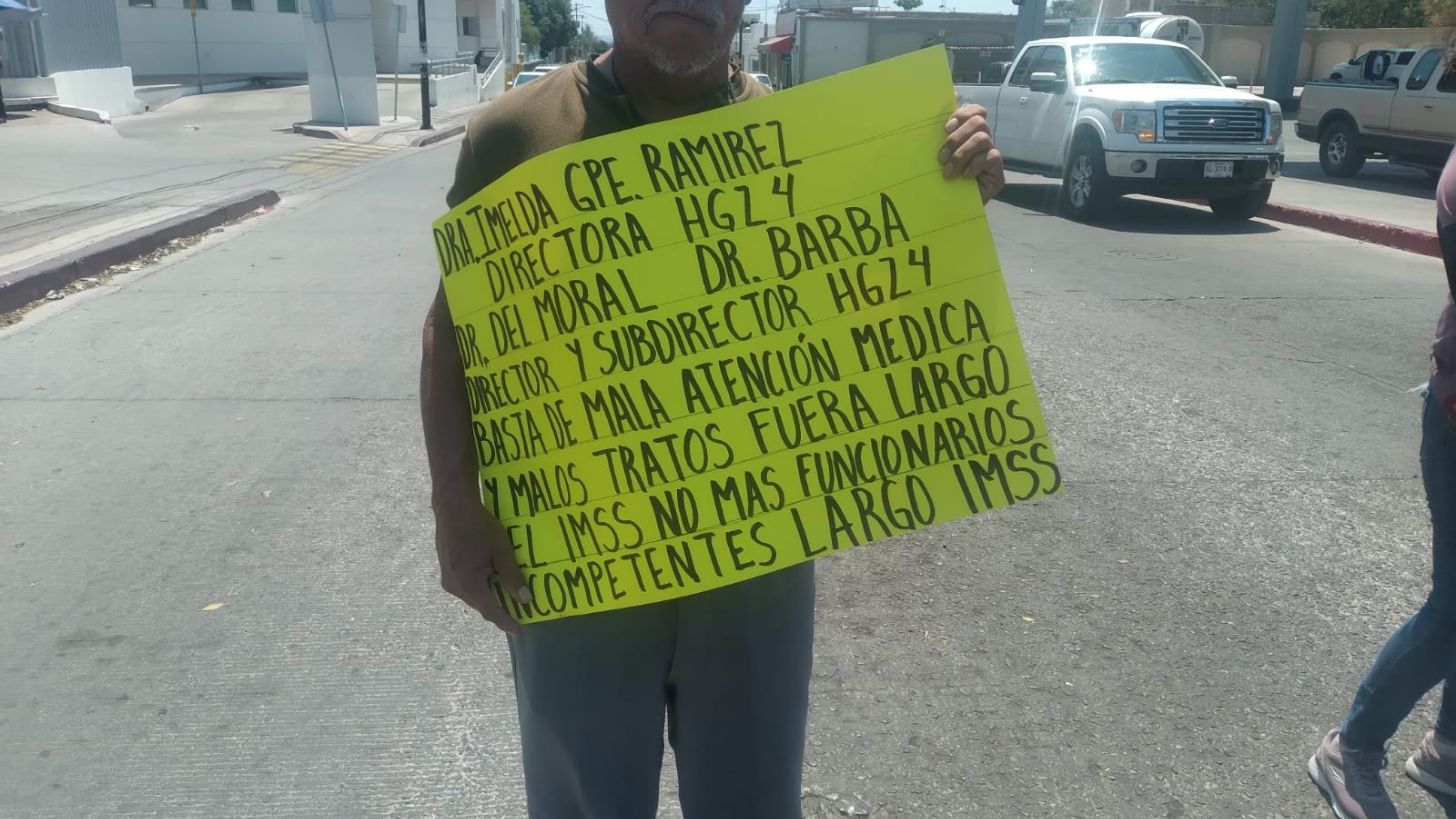 DRA. IMELDA GPE. RAMIREZ
DIRECTORA HGZ 4
DR. DEL MORAL DR. BARBA
DIRECTOR Y SUBDIRECTOR HGZ4
BASTA DE MALA ATENCIÓN MEDICA
Y MALOS TRATOS FUERA LARGO
EL IMSS NO MAS FUNCIONARIOS
INCOMPETENTES LARGO IMSS